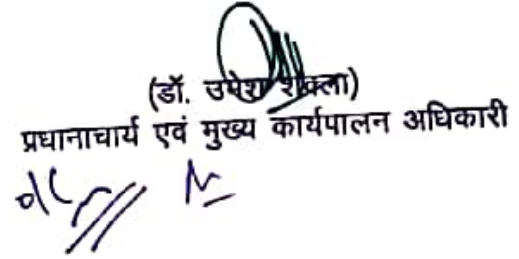 (डॉ. उमेश शुक्ला)
प्रधानाचार्य एवं मुख्य कार्यपालन अधिकारी